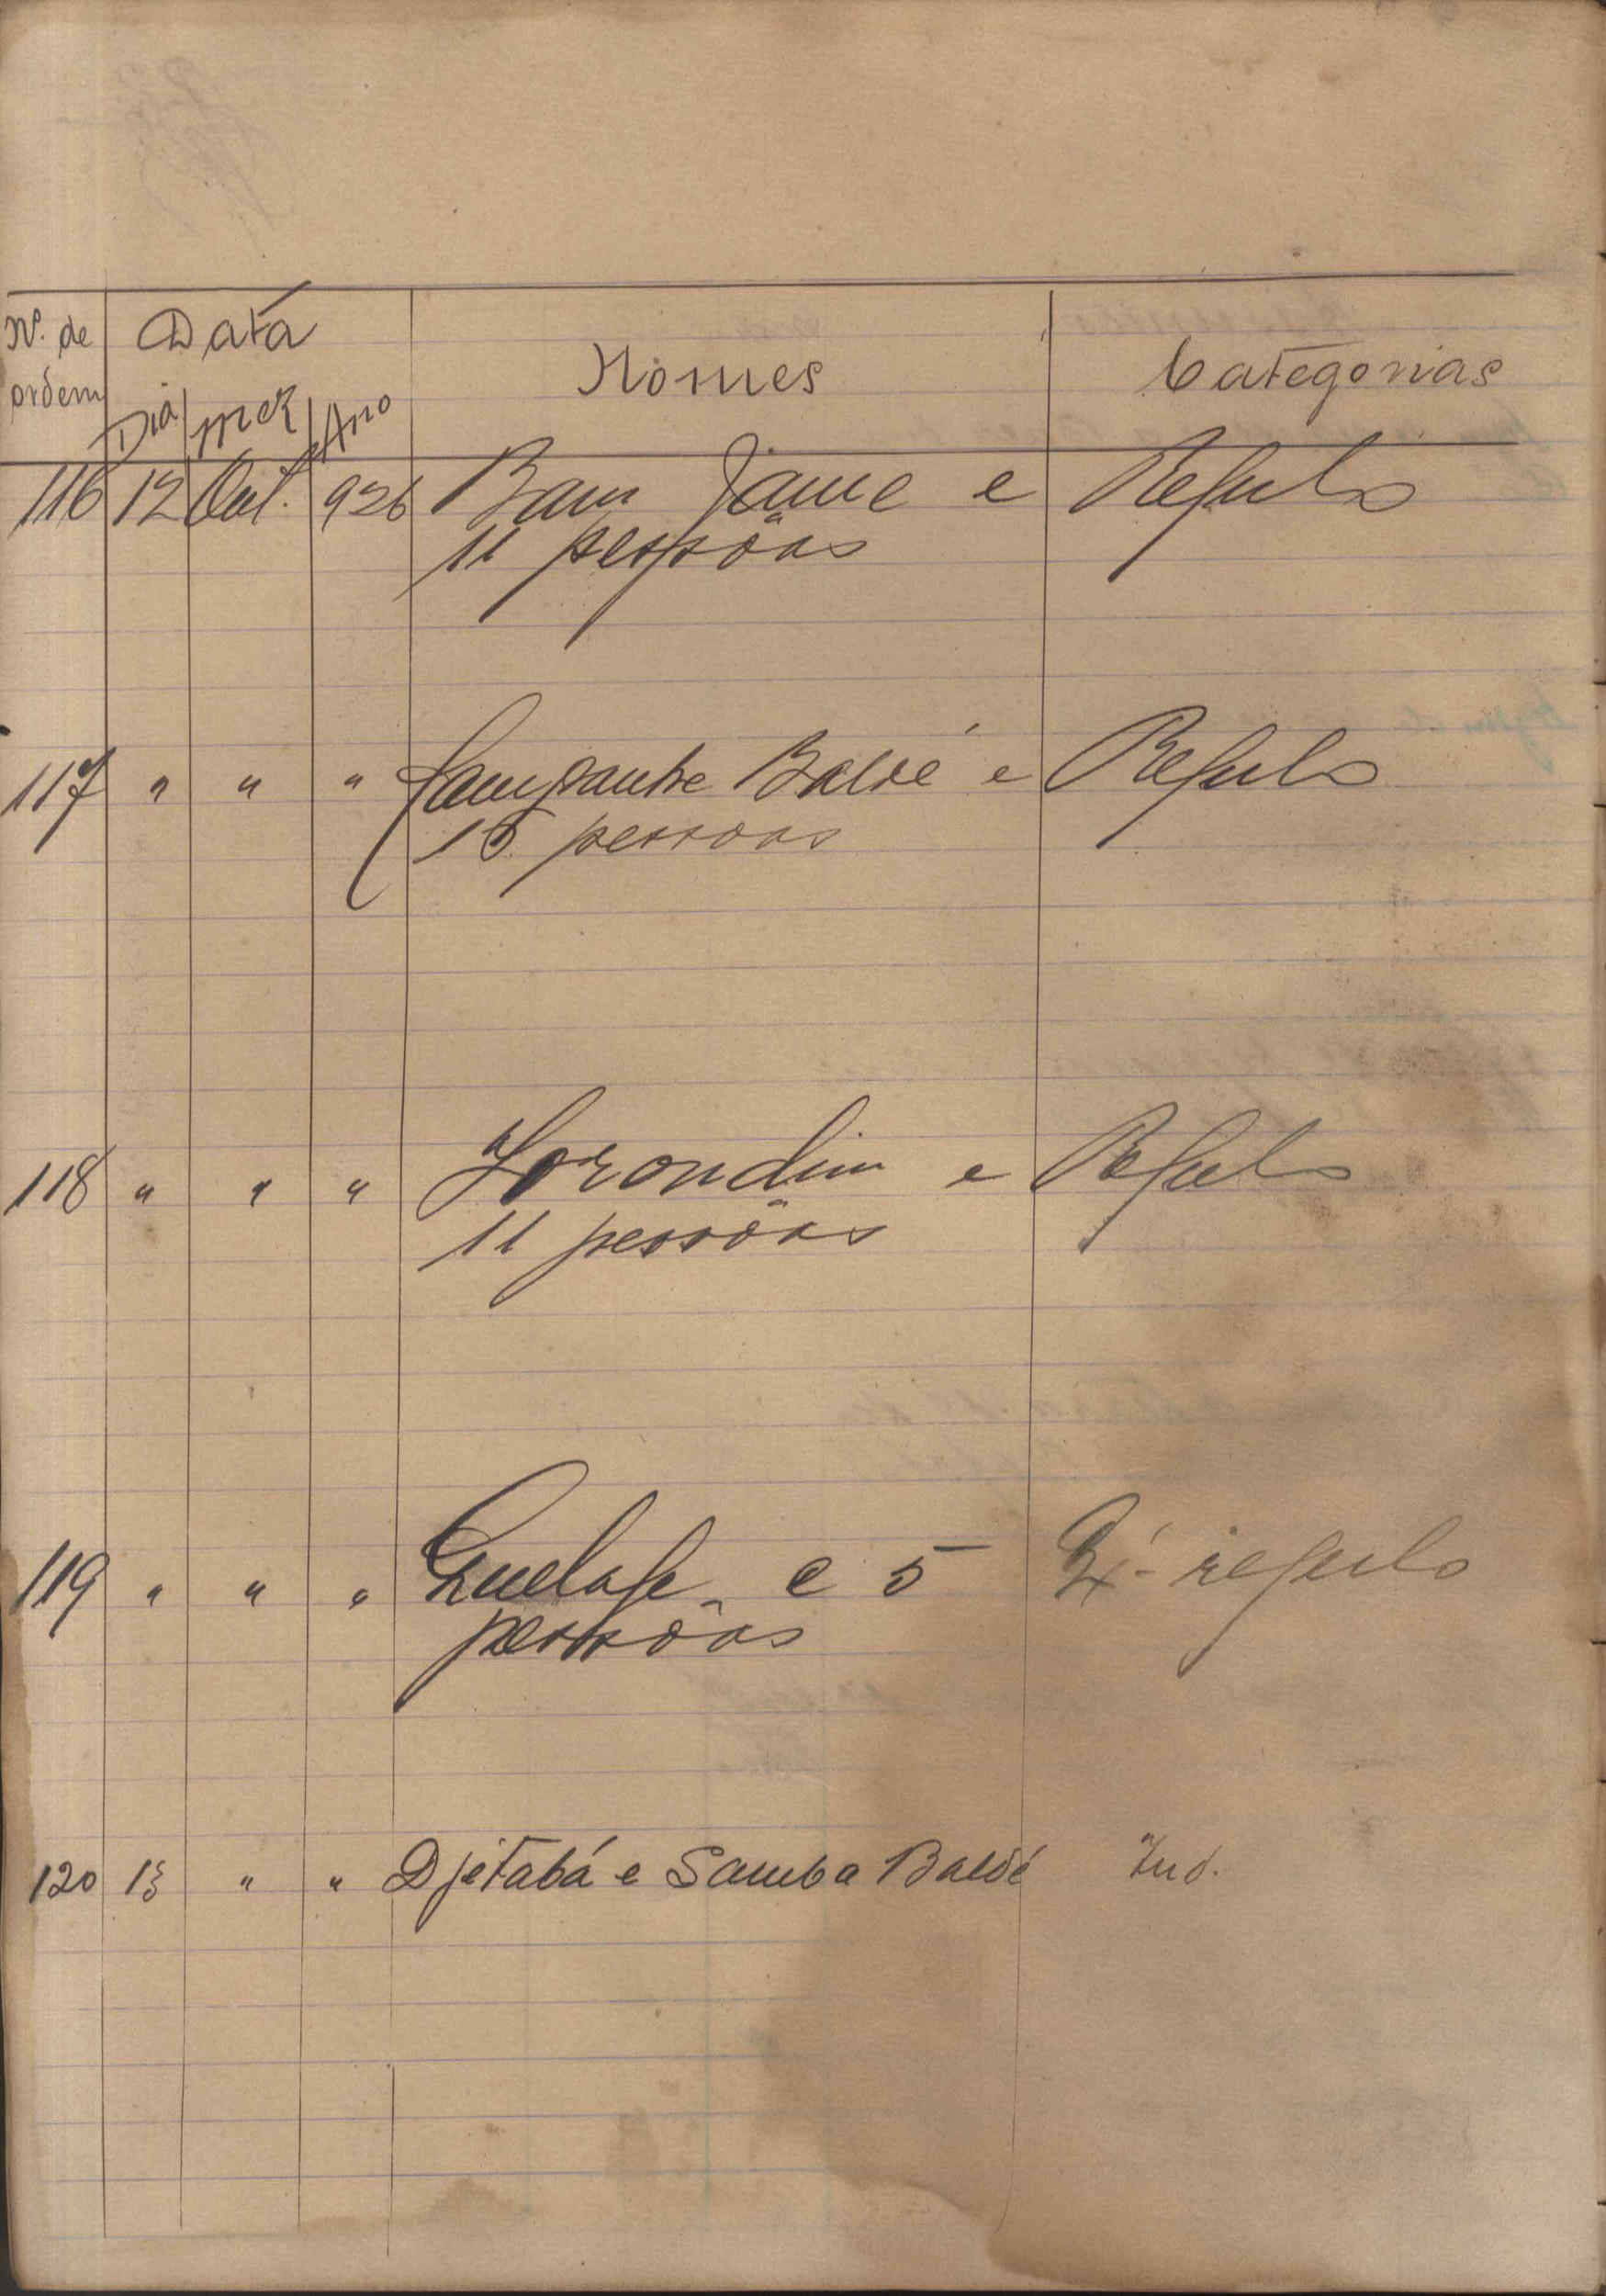 Nº. de Data Nomes Categorias
ordem Dia mez Ano
116 12 Out. 926 Bam Jame e Regulo
11 pessôas
117 " " " Baldé e Regulo
15 pessoas
118 " " " Sorondim e Regulo
11 pessôas
119 " " " e 5 Ex-regulo
pessôas
120 13 " " Djetabá e Samba Baldé Ind.